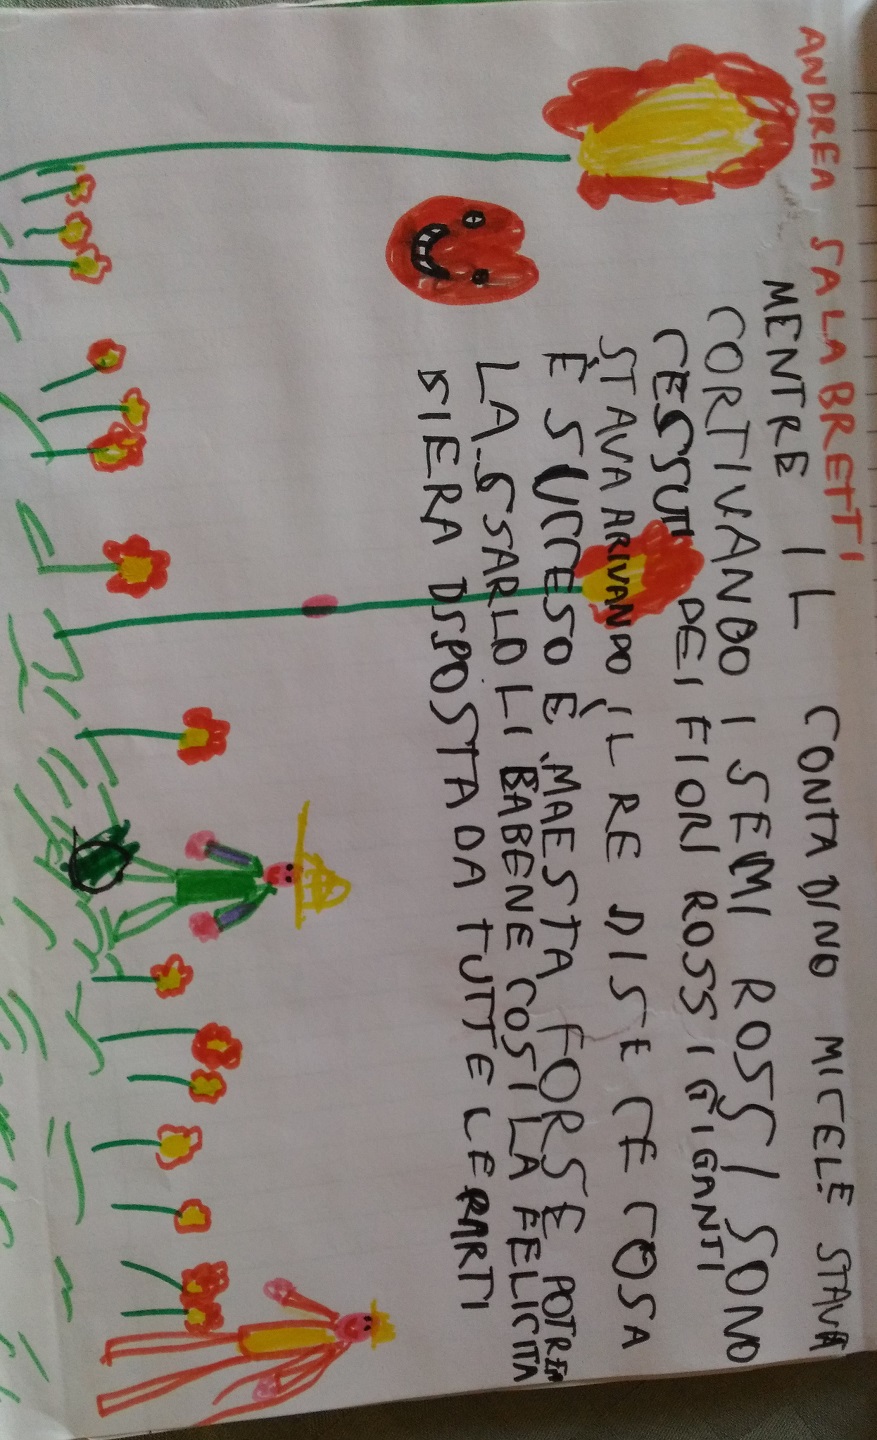 ANDREA SALABRETTI
MENTRE IL CONTADINO MICELE STAVA
CORTIVANDO I SEMI ROSSI SONO
CESSUTI DEI FIORI ROSSI GIGANTI
STAVA ARIVANDO IL RE DISE CE COSA
È SUCCESO E MAESTA FORSE POTREI
LASSARLO LI BABENE COSI LA FELICITA
SIERA DSPOSTA DA TUTTE LE PARTI